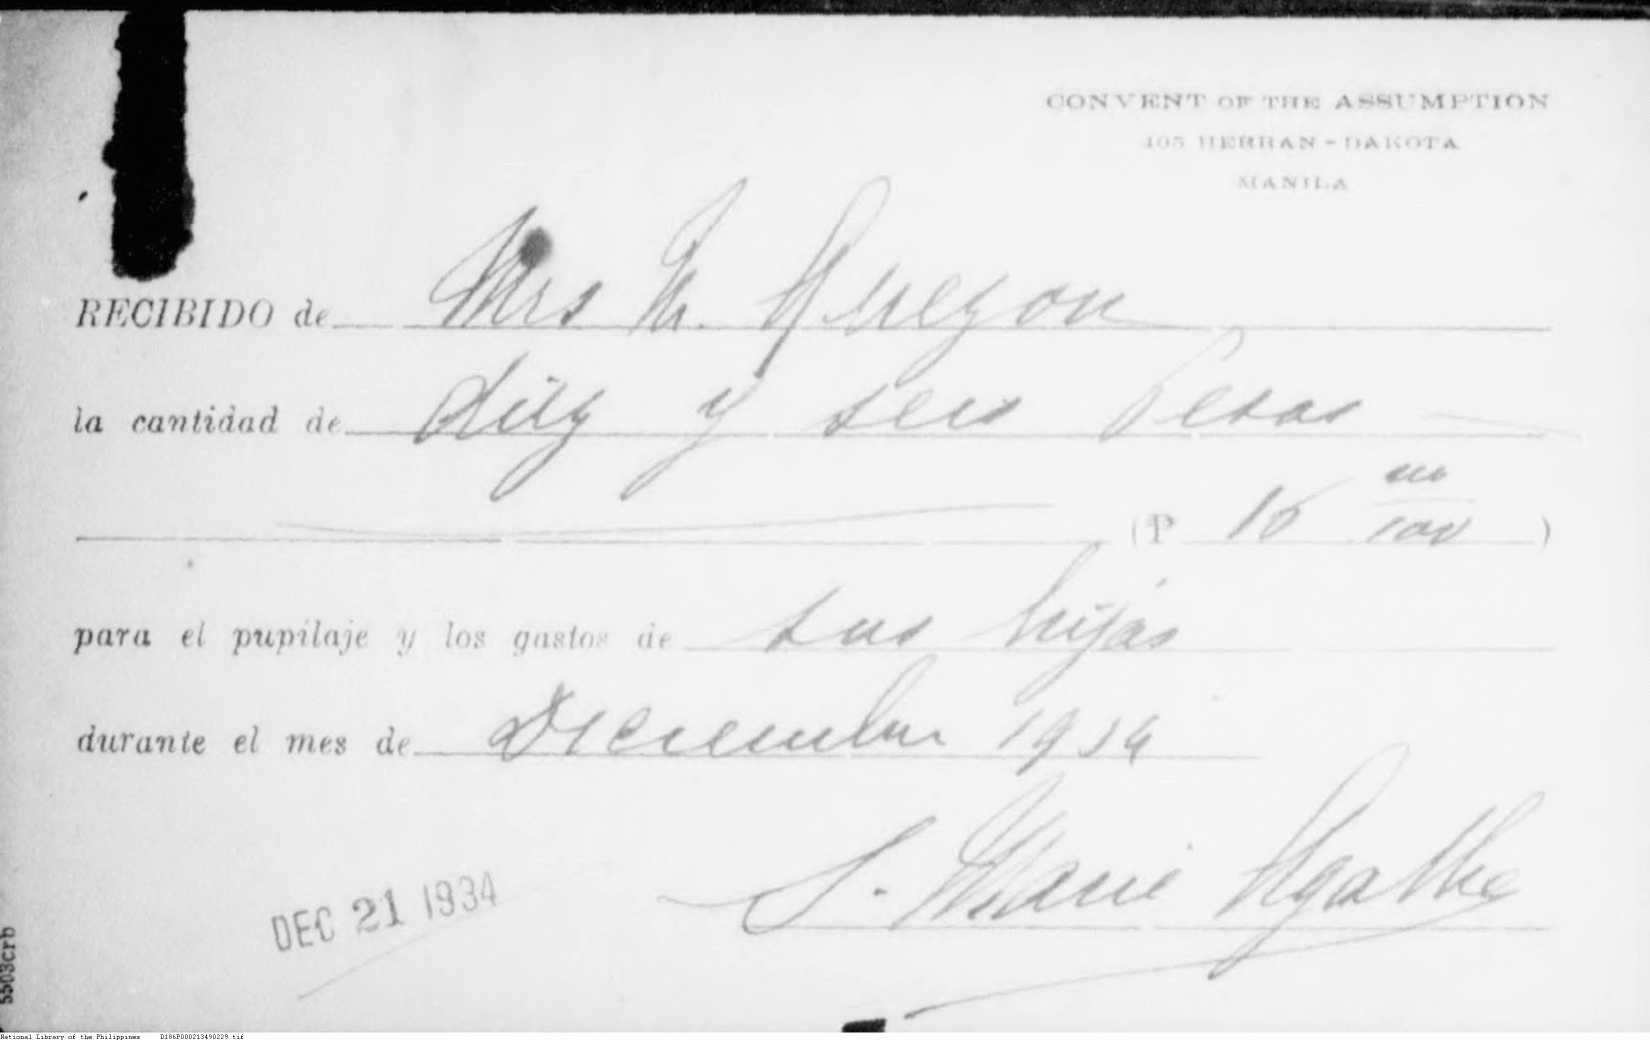 CONVENT OF THE ASSUMPTION
405 HERRAN - DAKOTA
MANILA
RECIBIDO de Mrs M. Quezon
la cantidad de diez y seis Pesos
(P 16 no/100)
para el pupilaje y los gastos de sus hijas
durante el mes de Diciembre 1934
S. Marie Agathe
DEC 21 1934
5503crb
National Library of the Philippines D186P000213490229.tif